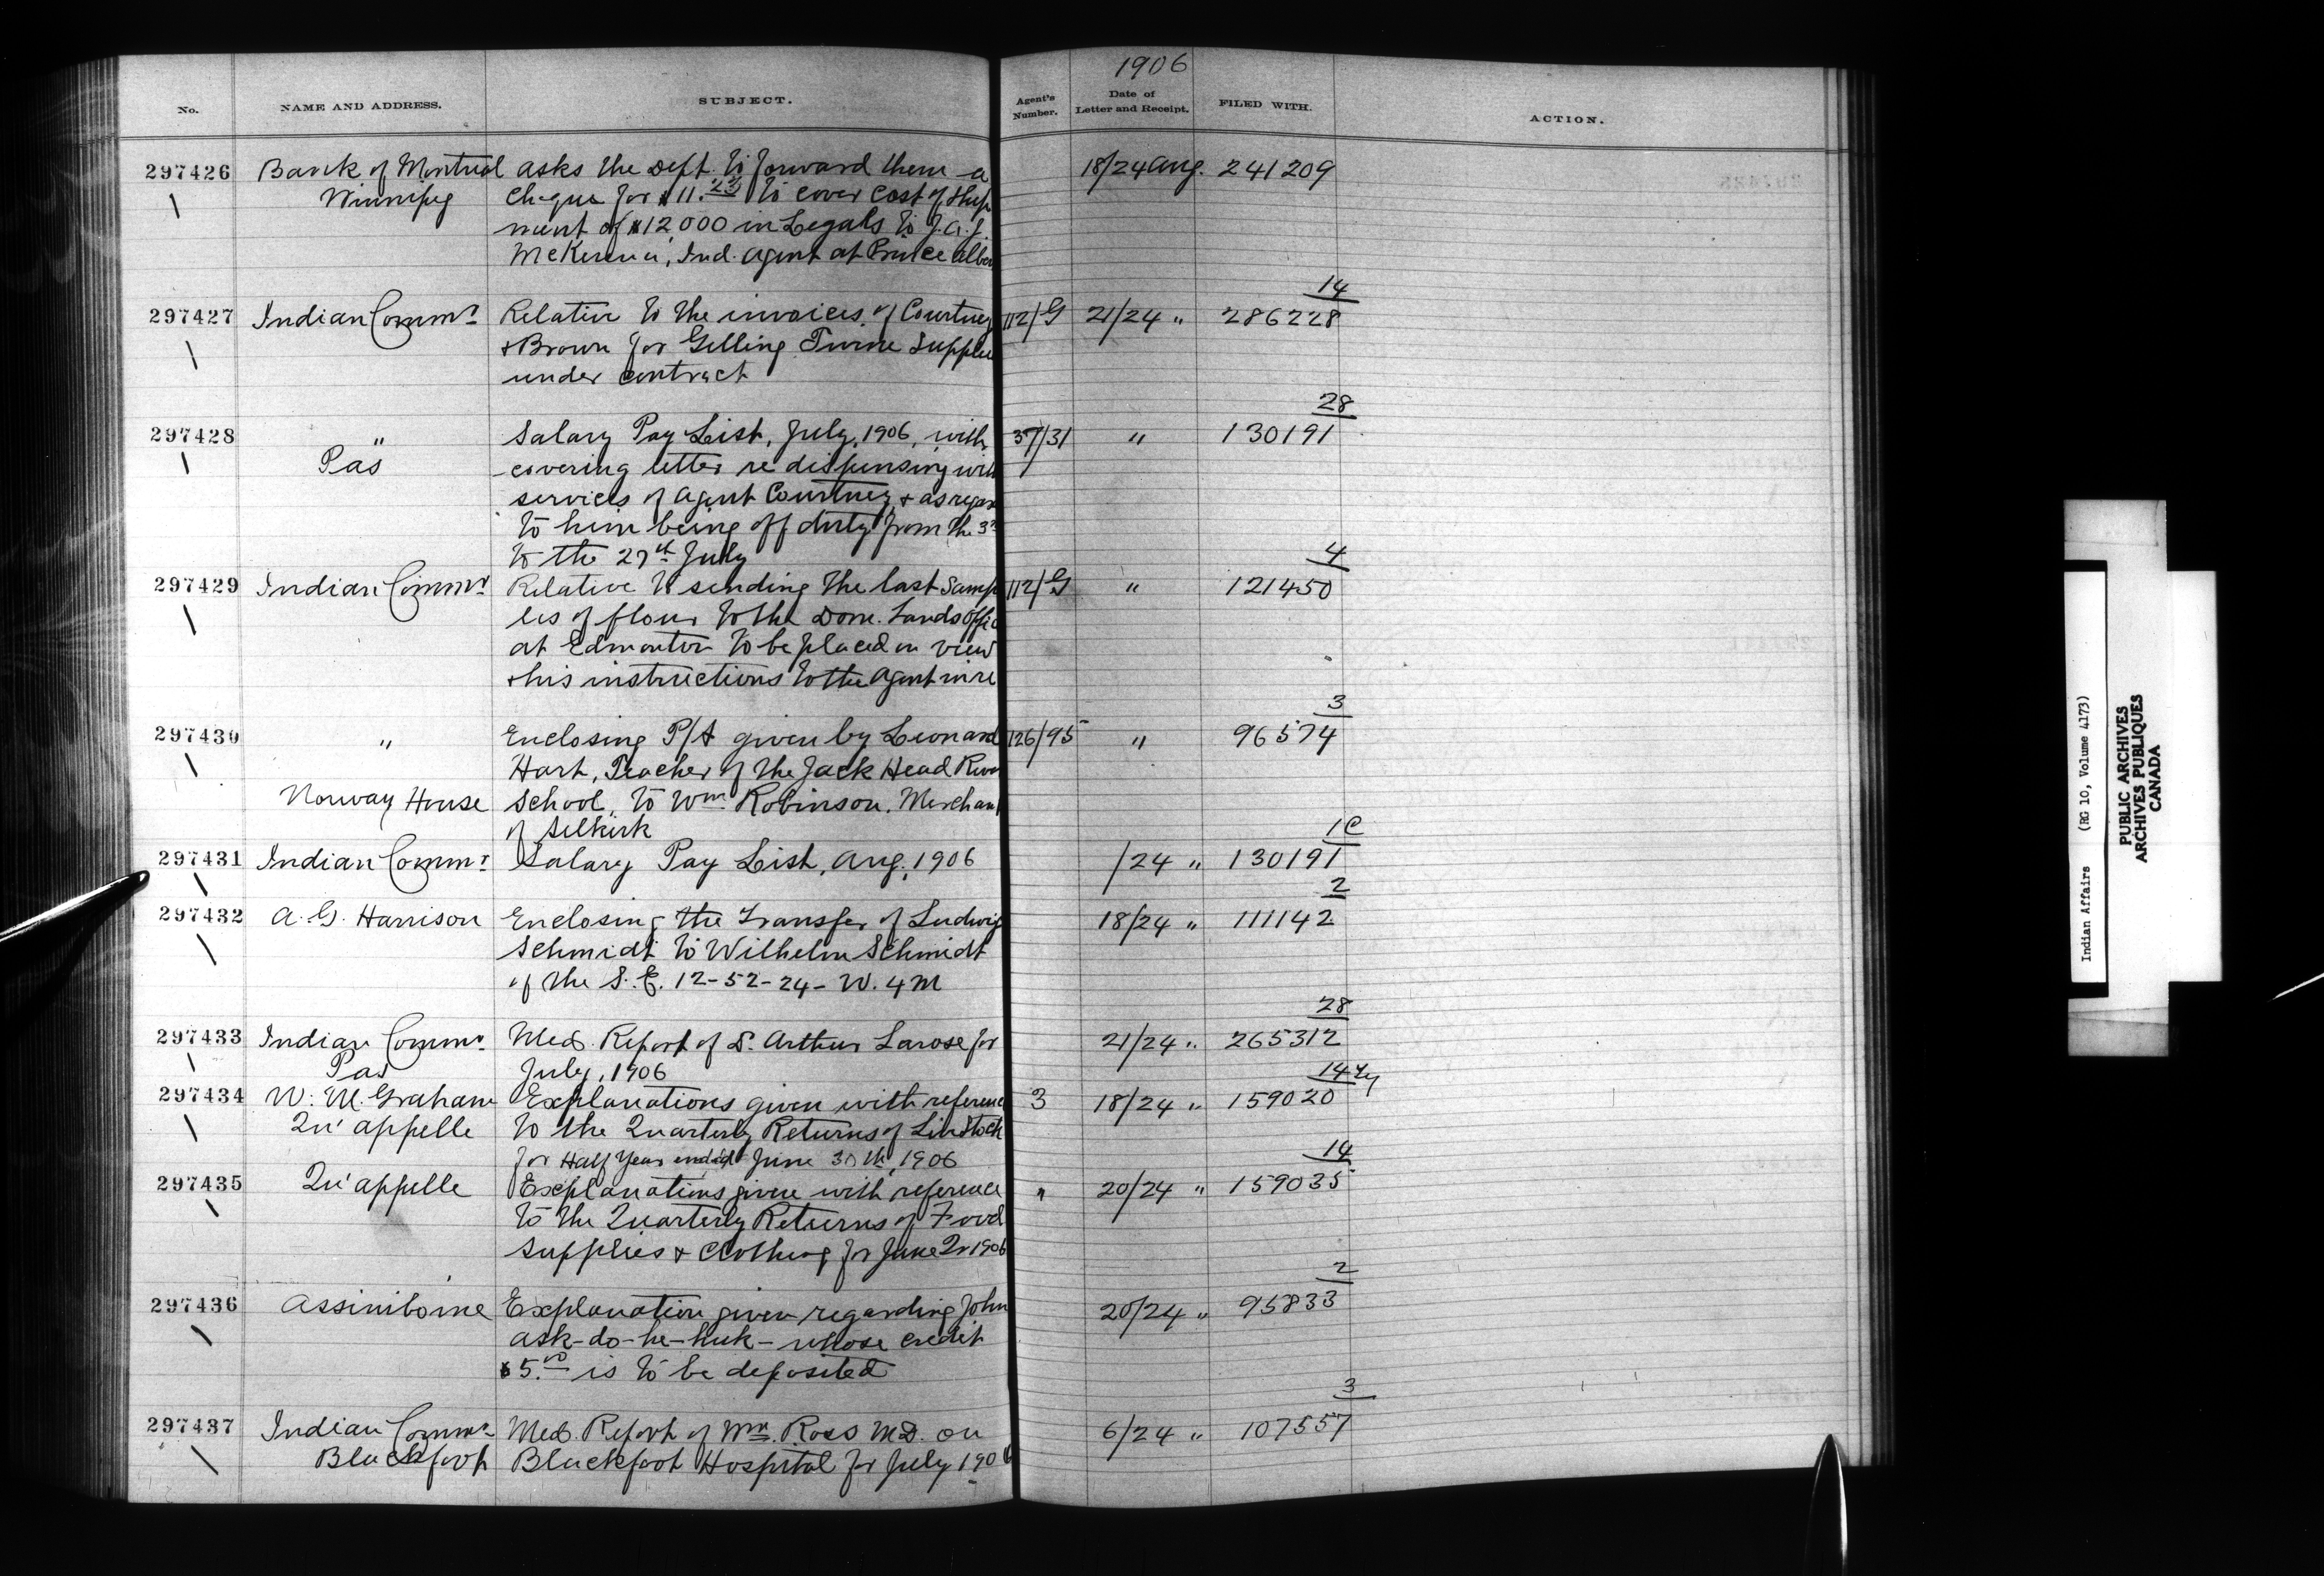 1906
No. NAME AND ADDRESS. SUBJECT. Agent's Number. Date of Letter and Receipt. FILED WITH. ACTION.
297426 Bank of Montreal asks the Dept. to forward them a 18/24 Aug. 241209
Winnipeg cheque for $11.25 to cover cost of ship
ment of $12000 in Legals to J.A.J.
McKenna, Ind. Agent at Prince Alber
14
297427 Indian Commr Relative to the invoices of Courtney 112/G 21/24 " 286228
& Brown for Gilling Twine Supplie
under contract
28
297428 " Salary Pay List, July, 1906, with 37/31 " 130191
Pas covering letter re dispensing with
services of Agent Courtney & as regar
to him being off duty from the 3rd
to the 27th July
4
297429 Indian Commr Relative to sending the last samp 112/G " 121450
les of flour to the Dom. Lands Offic
at Edmonton to be placed on view
& his instructions to the Agent in re
3
297430 " Enclosing P/A given by Leonard 126/95 " 96574
Hart, Teacher of the Jack Head River
Norway House School, to Wm Robinson, Merchant
of Selkirk
1C
297431 Indian Commr Salary Pay List, Aug, 1906 /24 " 130191
2
297432 A. G. Harrison Enclosing the transfer of Ludwig 18/24 " 111142
Schmidt to Wilhelm Schmidt
of the S.E. 12-52-24-W.4M
28
297433 Indian Commr Med. Report of Dr. Arthur Larose for 21/24 " 265312
Pas July, 1906
14
297434 W. M. Graham Explanations given with reference 3 18/24 " 159020
Qu'appelle to the Quarterly Returns of Live Stock
for Half Year ended June 30th, 1906
14
297435 Qu'appelle Explanations given with reference " 20/24 " 159035
to the Quarterly Returns of Food
Supplies & Clothing for June Qr 1906
2
297436 Assiniboine Explanation given regarding John 20/24 " 95833
ask-do-he-huk- whose credit
$5.00 is to be deposited
3
297437 Indian Commr Med. Report of Wm. Ross MD. on 6/24 " 107557
Blackfoot Blackfoot Hospital for July 1906
Indian Affairs (RG 10, Volume 4173)
PUBLIC ARCHIVES
ARCHIVES PUBLIQUES
CANADA